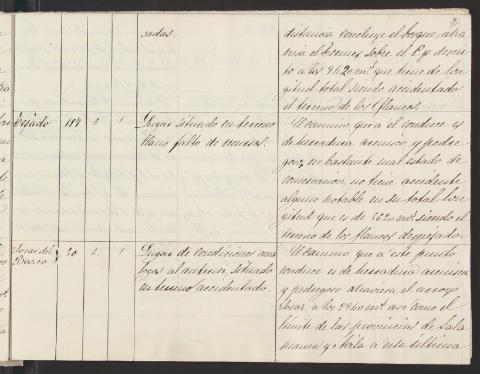 sadas.
distancia concluye el bosque, atra
viesa el Tormes sobre el P.p descri
to a los 9420 m.s que tiene de lon
gitud total siendo accidentado
el terreno de los flancos.
Tejado 187
Lugar situado en terreno
llano falto de recursos.
El camino que a el conduce es
de herradura arenoso y pedre
goso, en bastante mal estado de
conservacion, no tiene accidente
alguno notable en su total lon
gitud que es de 5620 m.s siendo el
terreno de los flancos despejado.
del Barco
Lugar de condiciones ana
logas al anterior, situado
en terreno accidentado.
El camino que a este punto
conduce es de herradura arenoso
y pedregoso atraviesa el arroyo
a los 2240 m.s asi como el
limite de las provincias de Sala
manca y Avila a esta ultima